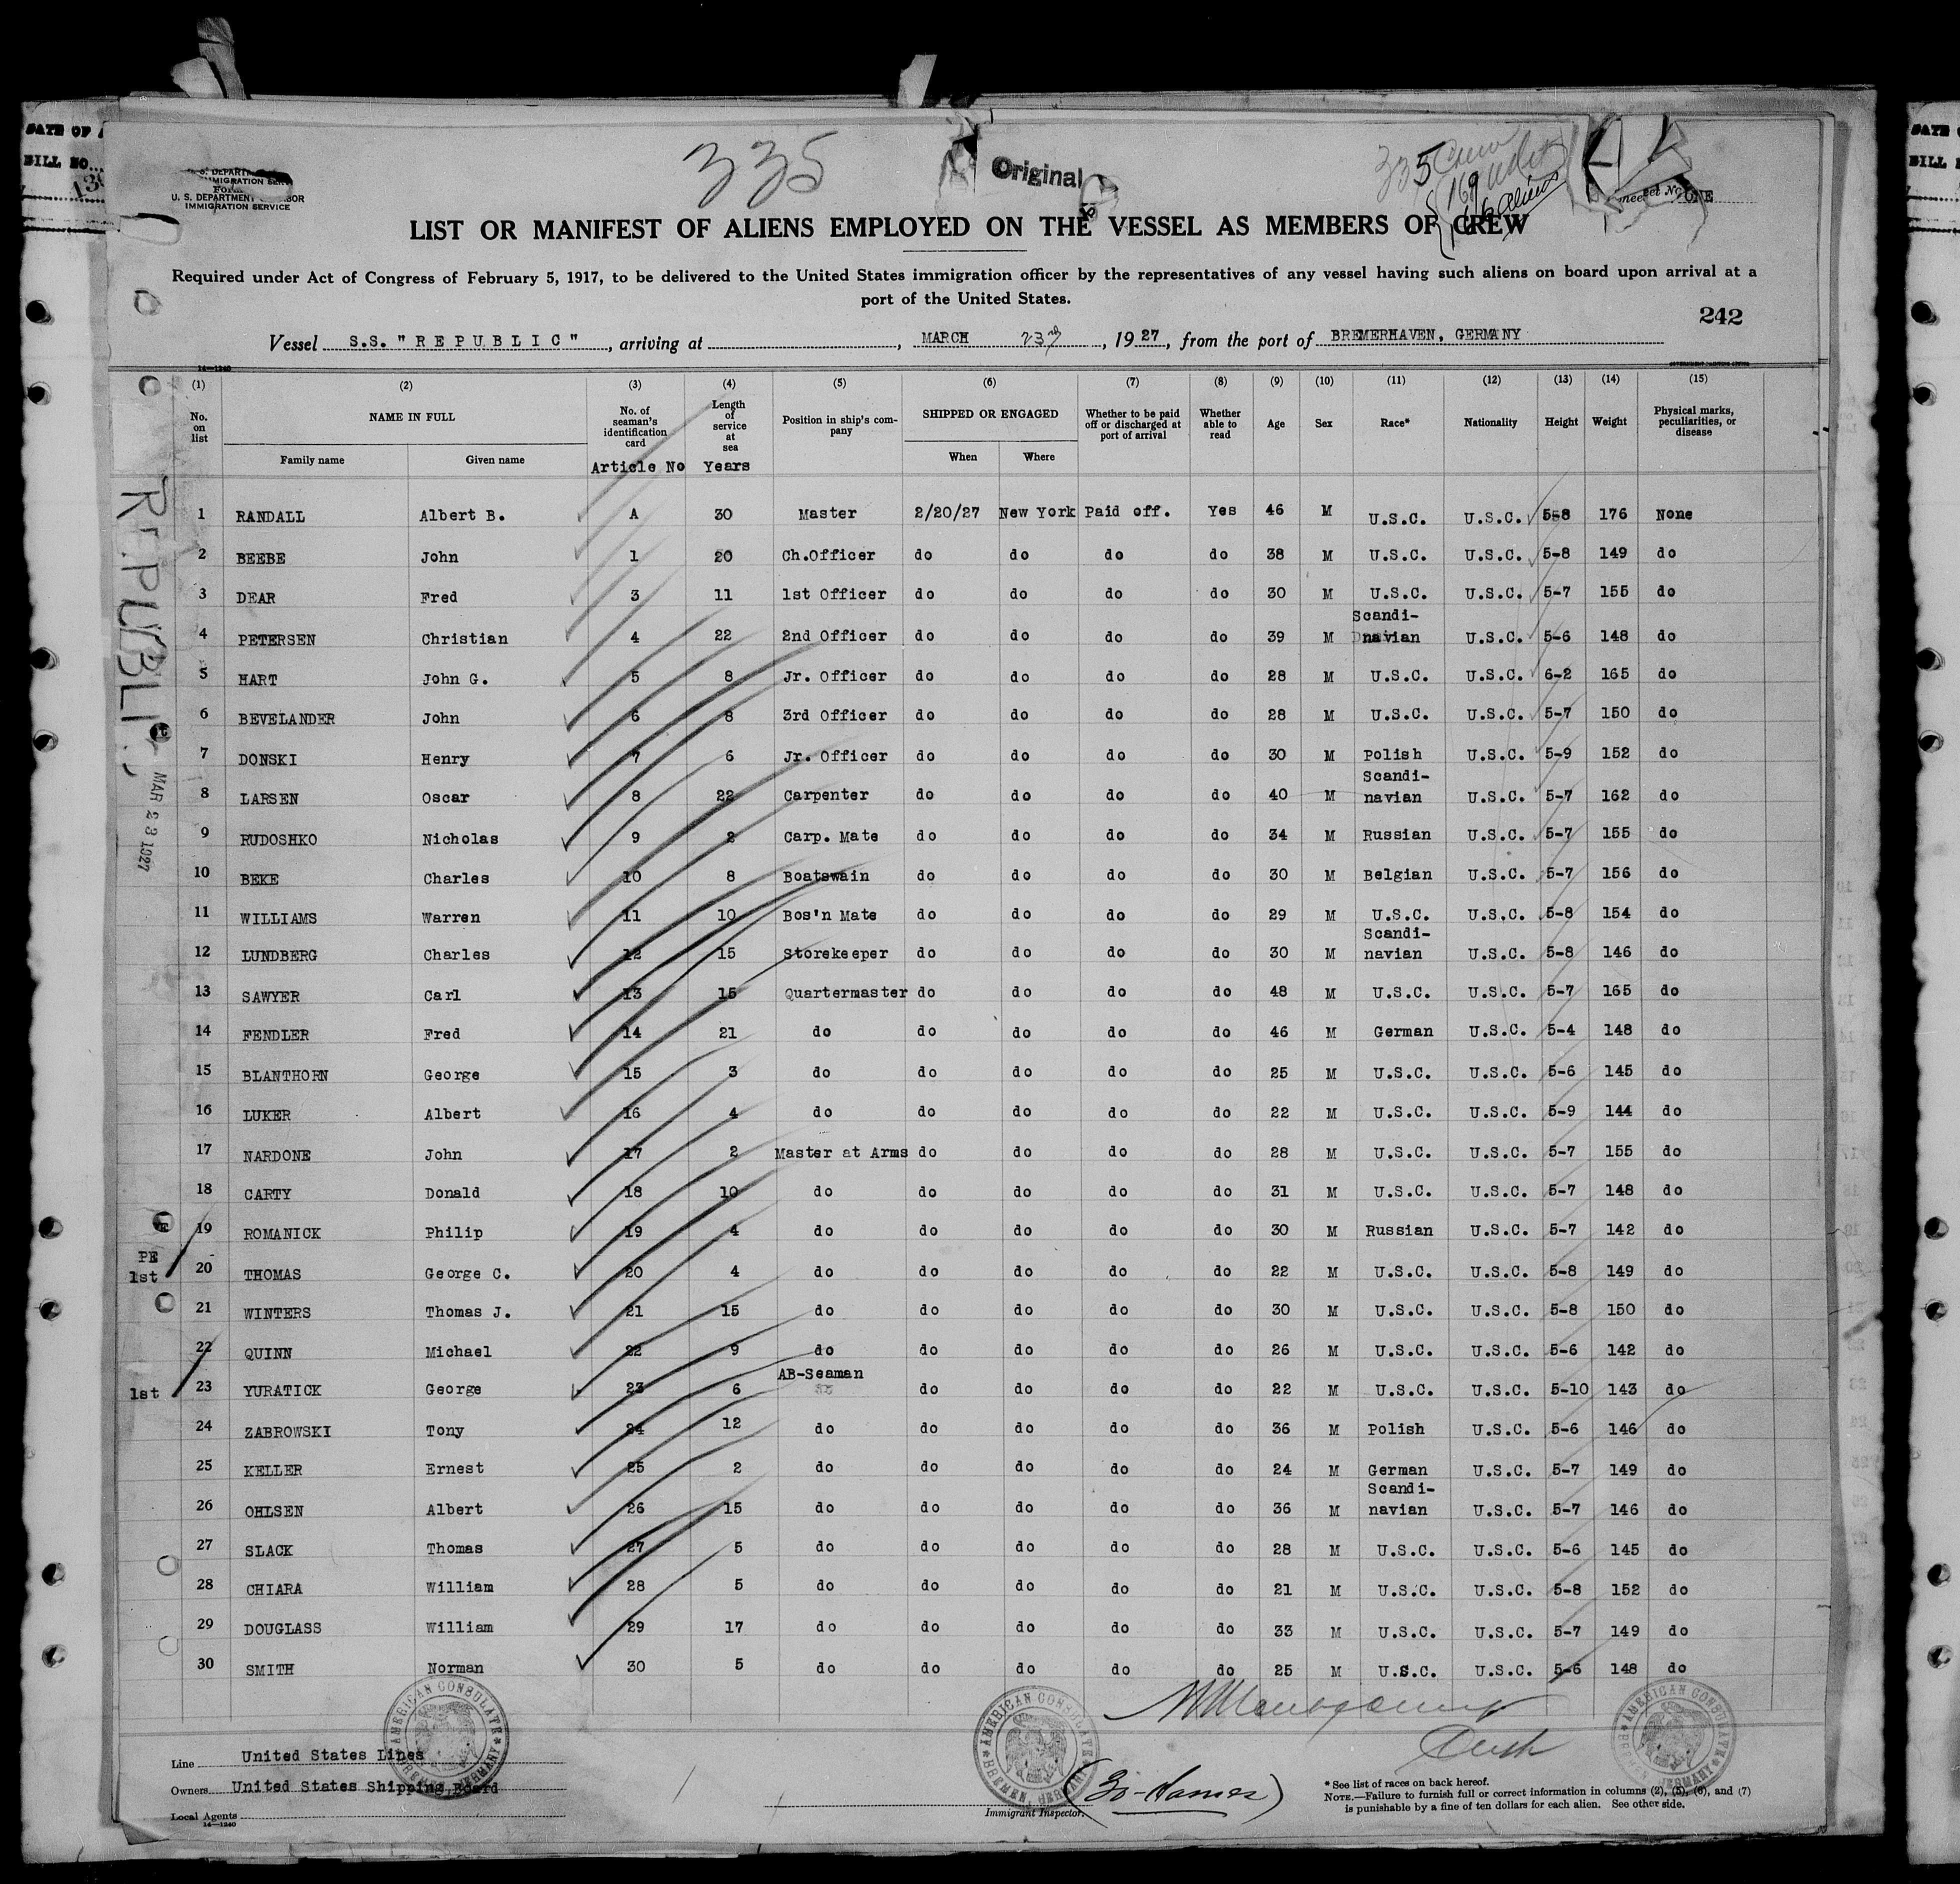 DATE OF
BILL NO.
U. S. DEPARTMENT OF LABOR
IMMIGRATION SERVICE
335
Original
335 Crew
169
ONE
LIST OR MANIFEST OF ALIENS EMPLOYED ON THE VESSEL AS MEMBERS OF CREW
Required under Act of Congress of February 5, 1917, to be delivered to the United States immigration officer by the representatives of any vessel having such aliens on board upon arrival at a
port of the United States.
242
Vessel S.S. "REPUBLIC", arriving at , MARCH 23rd, 1927, from the port of BREMERHAVEN, GERMANY
14—1240
(1) (2) (3) (4) (5) (6) (7) (8) (9) (10) (11) (12) (13) (14) (15)
No. on list NAME IN FULL No. of seaman's identification card Length of service at sea Position in ship's company SHIPPED OR ENGAGED Whether to be paid off or discharged at port of arrival Whether able to read Age Sex Race* Nationality Height Weight Physical marks, peculiarities, or disease
Family name Given name Article No Years When Where
1 RANDALL Albert B. A 30 Master 2/20/27 New York Paid off. Yes 46 M U.S.C. U.S.C. 5-8 176 None
2 BEEBE John 1 20 Ch.Officer do do do do 38 M U.S.C. U.S.C. 5-8 149 do
3 DEAR Fred 3 11 1st Officer do do do do 30 M U.S.C. U.S.C. 5-7 155 do
4 PETERSEN Christian 4 22 2nd Officer do do do do 39 M Scandi-navian U.S.C. 5-6 148 do
5 HART John G. 5 8 Jr. Officer do do do do 28 M U.S.C. U.S.C. 6-2 165 do
6 BEVELANDER John 6 8 3rd Officer do do do do 28 M U.S.C. U.S.C. 5-7 150 do
7 DONSKI Henry 7 6 Jr. Officer do do do do 30 M Polish U.S.C. 5-9 152 do
8 LARSEN Oscar 8 22 Carpenter do do do do 40 M Scandi-navian U.S.C. 5-7 162 do
9 RUDOSHKO Nicholas 9 8 Carp. Mate do do do do 34 M Russian U.S.C. 5-7 155 do
10 BEKE Charles 10 8 Boatswain do do do do 30 M Belgian U.S.C. 5-7 156 do
11 WILLIAMS Warren 11 10 Bos'n Mate do do do do 29 M U.S.C. U.S.C. 5-8 154 do
12 LUNDBERG Charles 12 15 Storekeeper do do do do 30 M Scandi-navian U.S.C. 5-8 146 do
13 SAWYER Carl 13 15 Quartermaster do do do do 48 M U.S.C. U.S.C. 5-7 165 do
14 FENDLER Fred 14 21 do do do do do 46 M German U.S.C. 5-4 148 do
15 BLANTHORN George 15 3 do do do do do 25 M U.S.C. U.S.C. 5-6 145 do
16 LUKER Albert 16 4 do do do do do 22 M U.S.C. U.S.C. 5-9 144 do
17 NARDONE John 17 2 Master at Arms do do do do 28 M U.S.C. U.S.C. 5-7 155 do
18 CARTY Donald 18 10 do do do do do 31 M U.S.C. U.S.C. 5-7 148 do
19 ROMANICK Philip 19 4 do do do do do 30 M Russian U.S.C. 5-7 142 do
PE
1st 20 THOMAS George C. 20 4 do do do do do 22 M U.S.C. U.S.C. 5-8 149 do
21 WINTERS Thomas J. 21 15 do do do do do 30 M U.S.C. U.S.C. 5-8 150 do
22 QUINN Michael 22 9 do do do do do 26 M U.S.C. U.S.C. 5-6 142 do
1st 23 YURATICK George 23 6 AB-Seaman do do do do 22 M U.S.C. U.S.C. 5-10 143 do
24 ZABROWSKI Tony 24 12 do do do do do 36 M Polish U.S.C. 5-6 146 do
25 KELLER Ernest 25 2 do do do do do 24 M German U.S.C. 5-7 149 do
26 OHLSEN Albert 26 15 do do do do do 36 M Scandi-navian U.S.C. 5-7 146 do
27 SLACK Thomas 27 5 do do do do do 28 M U.S.C. U.S.C. 5-6 145 do
28 CHIARA William 28 5 do do do do do 21 M U.S.C. U.S.C. 5-8 152 do
29 DOUGLASS William 29 17 do do do do do 33 M U.S.C. U.S.C. 5-7 149 do
30 SMITH Norman 30 5 do do do do do 25 M U.S.C. U.S.C. 5-6 148 do
REPUBLIC
MAR 23 1927
AMERICAN CONSULATE BREMEN, GERMANY
AMERICAN CONSULATE BREMEN, GERMANY
AMERICAN CONSULATE BREMEN, GERMANY
Line United States Lines
Owners United States Shipping Board
Local Agents
14—1240
Immigrant Inspector.
(30-Names)
* See list of races on back hereof.
NOTE.—Failure to furnish full or correct information in columns (2), (5), (6), and (7)
is punishable by a fine of ten dollars for each alien. See other side.